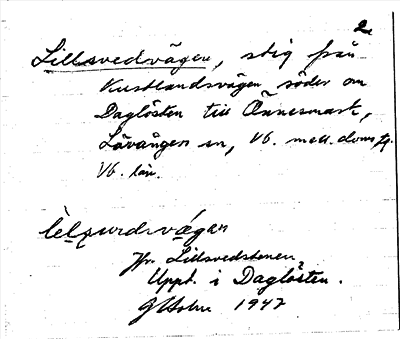 2.
Lillsvedvägen, stig från
Kustlandsvägen söder om
Daglösten till Önnesmark,
Lövånger sn, Vb. mell. doms.
Vb. län.
vägen
Jfr Lillsvedstenen.
Uppt. i Daglösten.
G Holm 1947